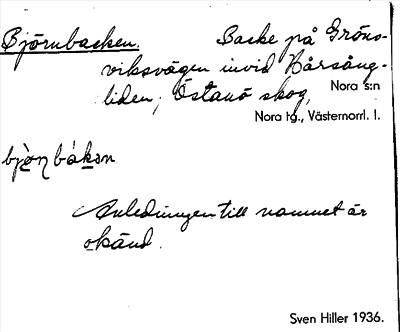 Björnbacken. Backe på Gröns-
viksvägen invid Hårsång-
liden, Östanö skog, Nora s:n
Nora tg., Västernorrl. l.
bjò̱ŋ bákan
Anledningen till namnet är
okänd.
Sven Hiller 1936.